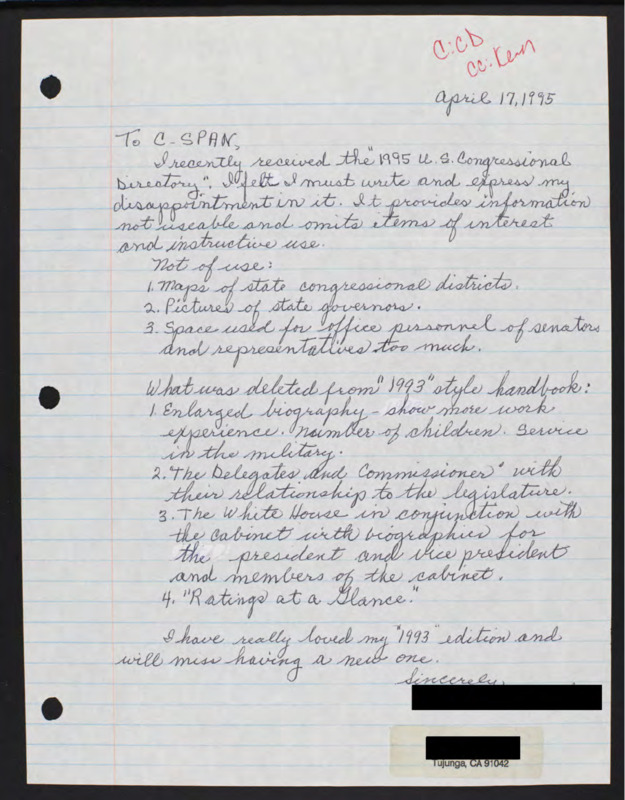 C:CD
cc: Ken
April 17, 1995
To C-SPAN,
I recently received the "1995 U.S. Congressional
Directory". I felt I must write and express my
disappointment in it. It provides information
not useable and omits items of interest
and instructive use.
Not of use:
1. Maps of state congressional districts.
2. Pictures of state governors.
3. Space used for office personnel of senators
and representatives too much.
What was deleted from "1993" style handbook:
1. Enlarged biography - show more work
experience. Number of children. Service
in the military.
2. "The Delegates and Commissioner" with
their relationship to the legislature.
3. The White House in conjunction with
the cabinet with biographies for
the president and vice president
and members of the cabinet.
4. "Ratings at a Glance."
I have really loved my "1993" edition and
will miss having a new one.
Sincerely,
Tujunga, CA 91042